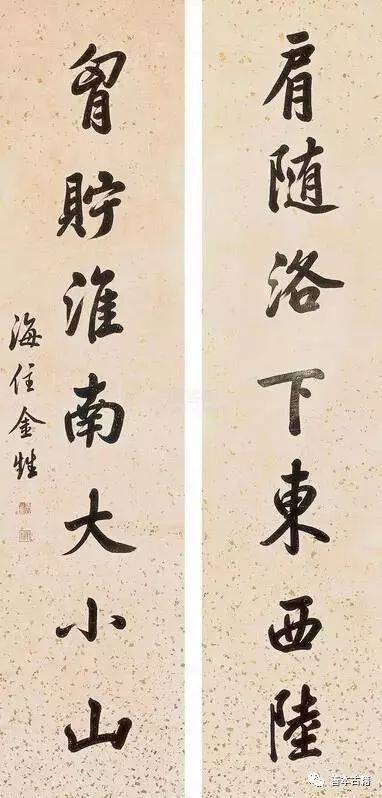 肩随洛下東西陸
胷貯淮南大小山
海住金甡
善本古籍